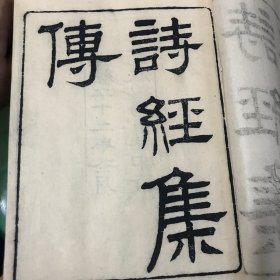 詩經集
傳